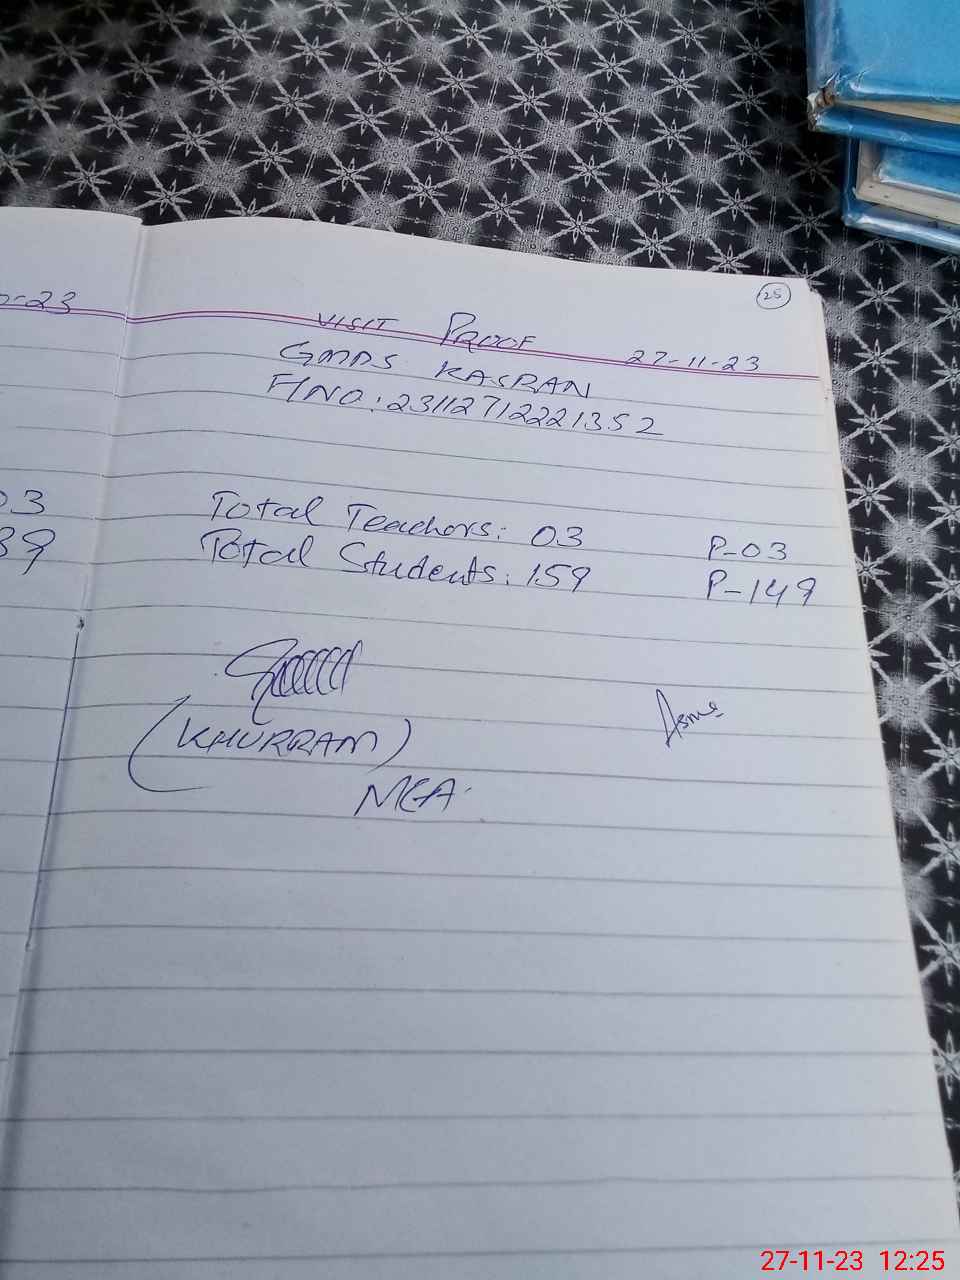 25
-23
VISIT PROOF 27-11-23
GMPS KASRAN
F/NO: 231127122221352
03
Total Teachors: 03 P-03
39
Total Students: 159 P-149
(KHURRAM)
MEA.
Asma
27-11-23 12:25